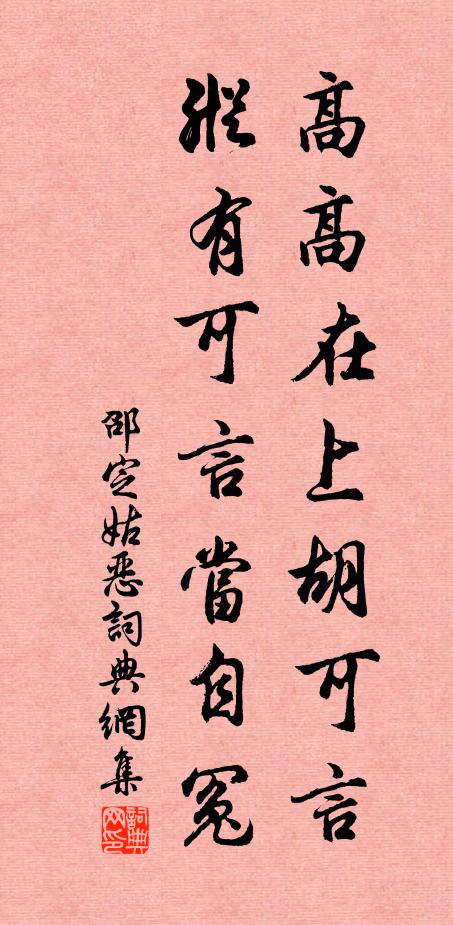 高高在上胡可言
縱有可言當自冤
邵定姑惡詞典網集
詞典网印